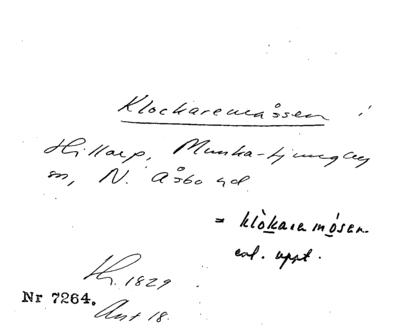 Klockaremåssen
Hillarp, Munka-Ljungby
sn, N. Åsbo hd.
= klòkaremósen
enl. uppt.
1829
Nr 7264. Ant 18.